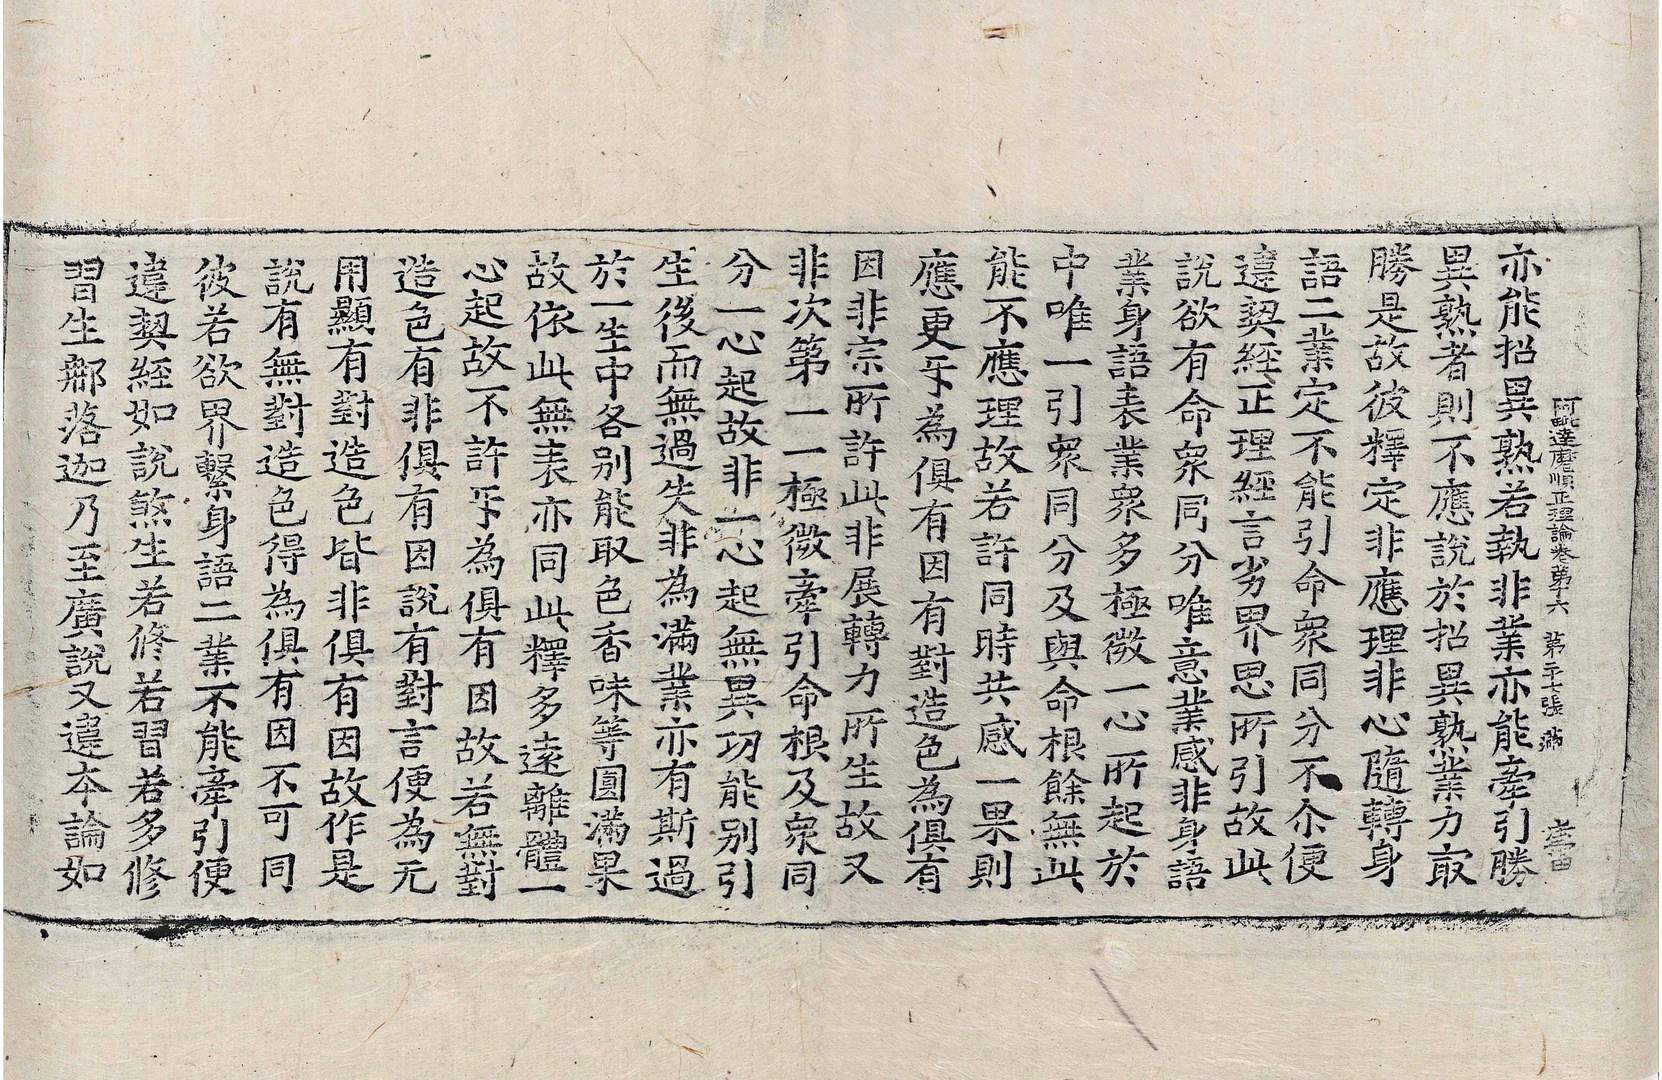 阿毗達磨順正理論卷第十六 第二十七張 滿
亦能招異熟若執非業亦能牽引勝
異熟者則不應說於招異熟業力㝡
勝是故彼釋定非應理非心隨轉身
語二業定不能引命衆同分不尒便
違契經正理經言劣界思所引故此
說欲有命衆同分唯意業感非身語
業身語表業衆多極微一心所起於
中唯一引衆同分及與命根餘無此
能不應理故若許同時共感一果則
應更㸦為俱有因有對造色為俱有
因非宗所許此非展轉力所生故又
非次第一一極微牽引命根及衆同
分一心起故非一心起無異功能別引
生後而無過失非為滿業亦有斯過
於一生中各别能取色香味等圓滿果
故依此無表亦同此釋多遠離體一
心起故不許㸦為俱有因故若無對
造色有非俱有因說有對言便為无
用顯有對造色皆非俱有因故作是
說有無對造色得為俱有因不可同
彼若欲界繫身語二業不能牽引便
違契經如說煞生若修若習若多修
習生那落迦乃至廣說又違本論如